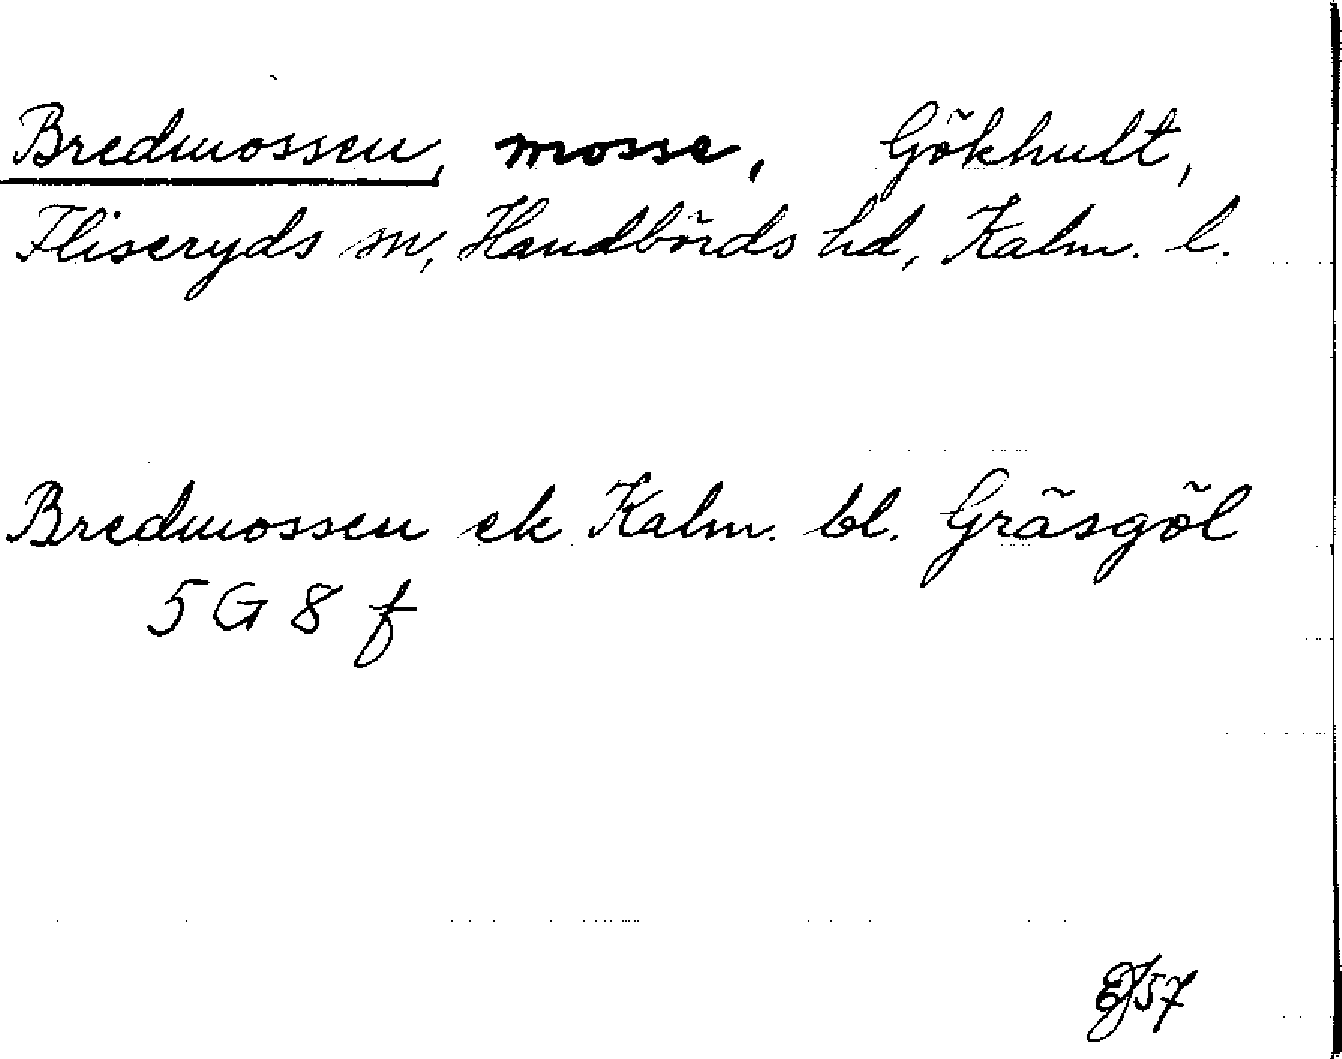 Bredmossen, mosse, Gökhult,
Fliseryds sn, Handbörds hd, Kalm. l.
Bredmossen ek Kalm. bl. Gräsgöl
5 G 8 f